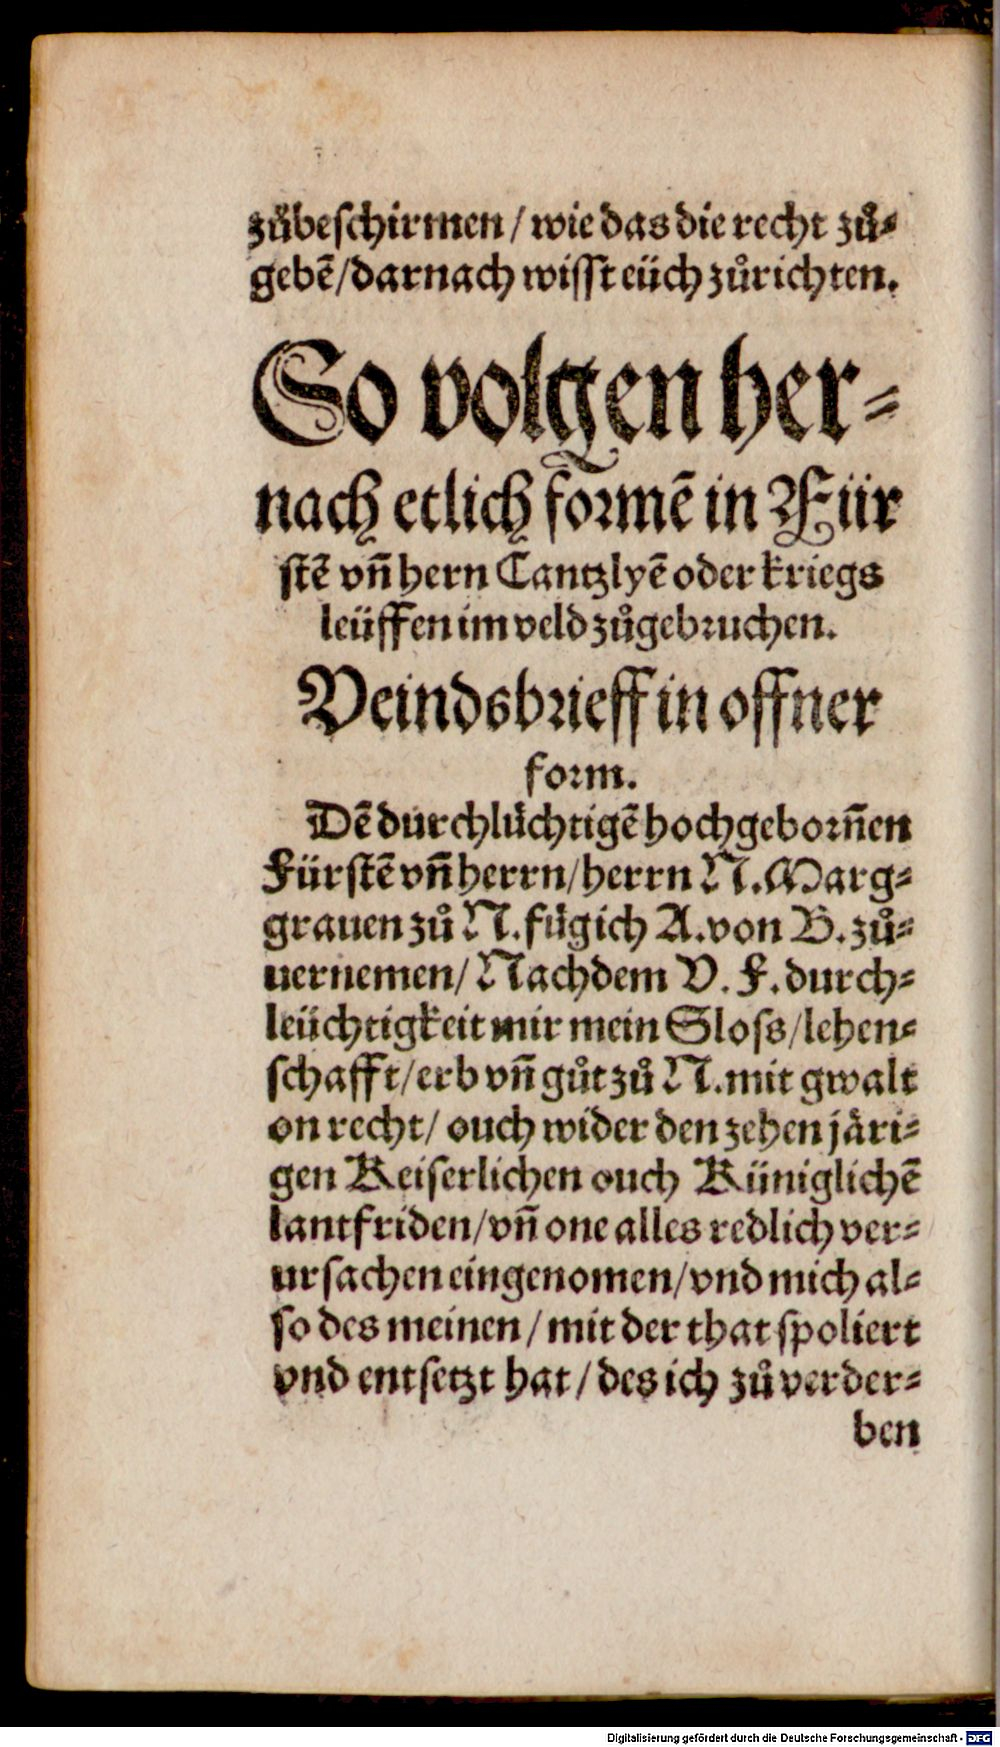 zůbeschirmen / wie das die recht zů⸗
gebẽ/darnach wisst eüch zůrichten.
So volgen her⸗
nach etlich formẽ in Für
stẽ vñ hern Cantzlyẽ oder kriegs
leüffen im veld zůgebruchen.
Veindsbrieff in offner
form.
Dẽ durchlüchtigẽ hochgeborñen
Fürstẽ vñ herrn/herrn N. Marg⸗
grauen zů N. füg ich A. von B. zů⸗
uernemen/ Nachdem V. F. durch⸗
leüchtigkeit mir mein Sloss/lehen⸗
schafft/erb vñ gůt zů N. mit gwalt
on recht/ ouch wider den zehen järi⸗
gen Keiserlichen ouch Küniglichẽ
lantfriden/vñ one alles redlich ver⸗
ursachen eingenomen/vnd mich al⸗
so des meinen / mit der that spoliert
vnd entsetzt hat / des ich zů verder⸗
ben
Digitalisierung gefördert durch die Deutsche Forschungsgemeinschaft - DFG